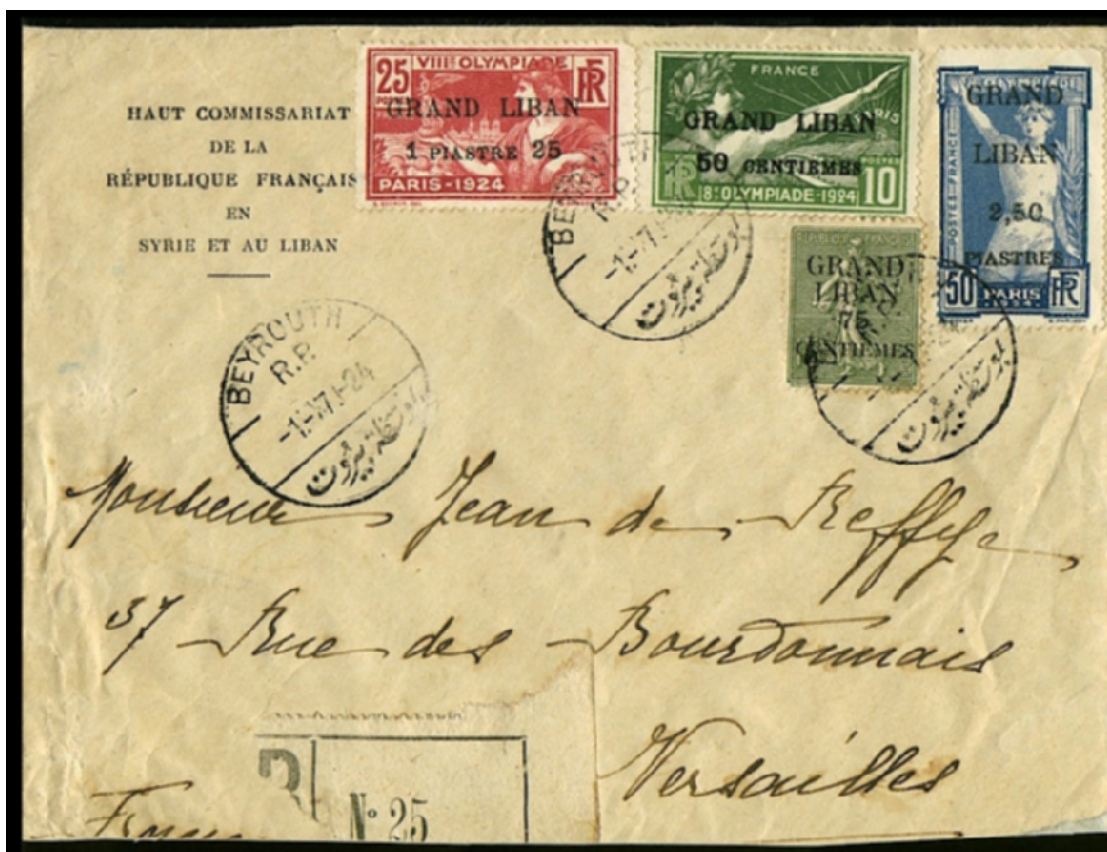 HAUT COMMISSARIAT
DE LA
RÉPUBLIQUE FRANÇAIS
EN
SYRIE ET AU LIBAN
25 VIIIE OLYMPIADE RF
GRAND LIBAN
1 PIASTRE 25
PARIS-1924
FRANCE
GRAND LIBAN
50 CENTIEMES
RF 8E OLYMPIADE-1924 10
POSTES
GRAND
LIBAN
2,50
PIASTRES
POSTES FRANCE
50 PARIS RF
GRAND
LIBAN
75
CENTIEMES
BEYROUTH
R.P.
بيروت
BEYROUTH
R.P.
-24
بيروت
بيروت
Monsieur Jean de Reffye
37 Rue des Bourdonnais
Versailles
France
R
N° 25